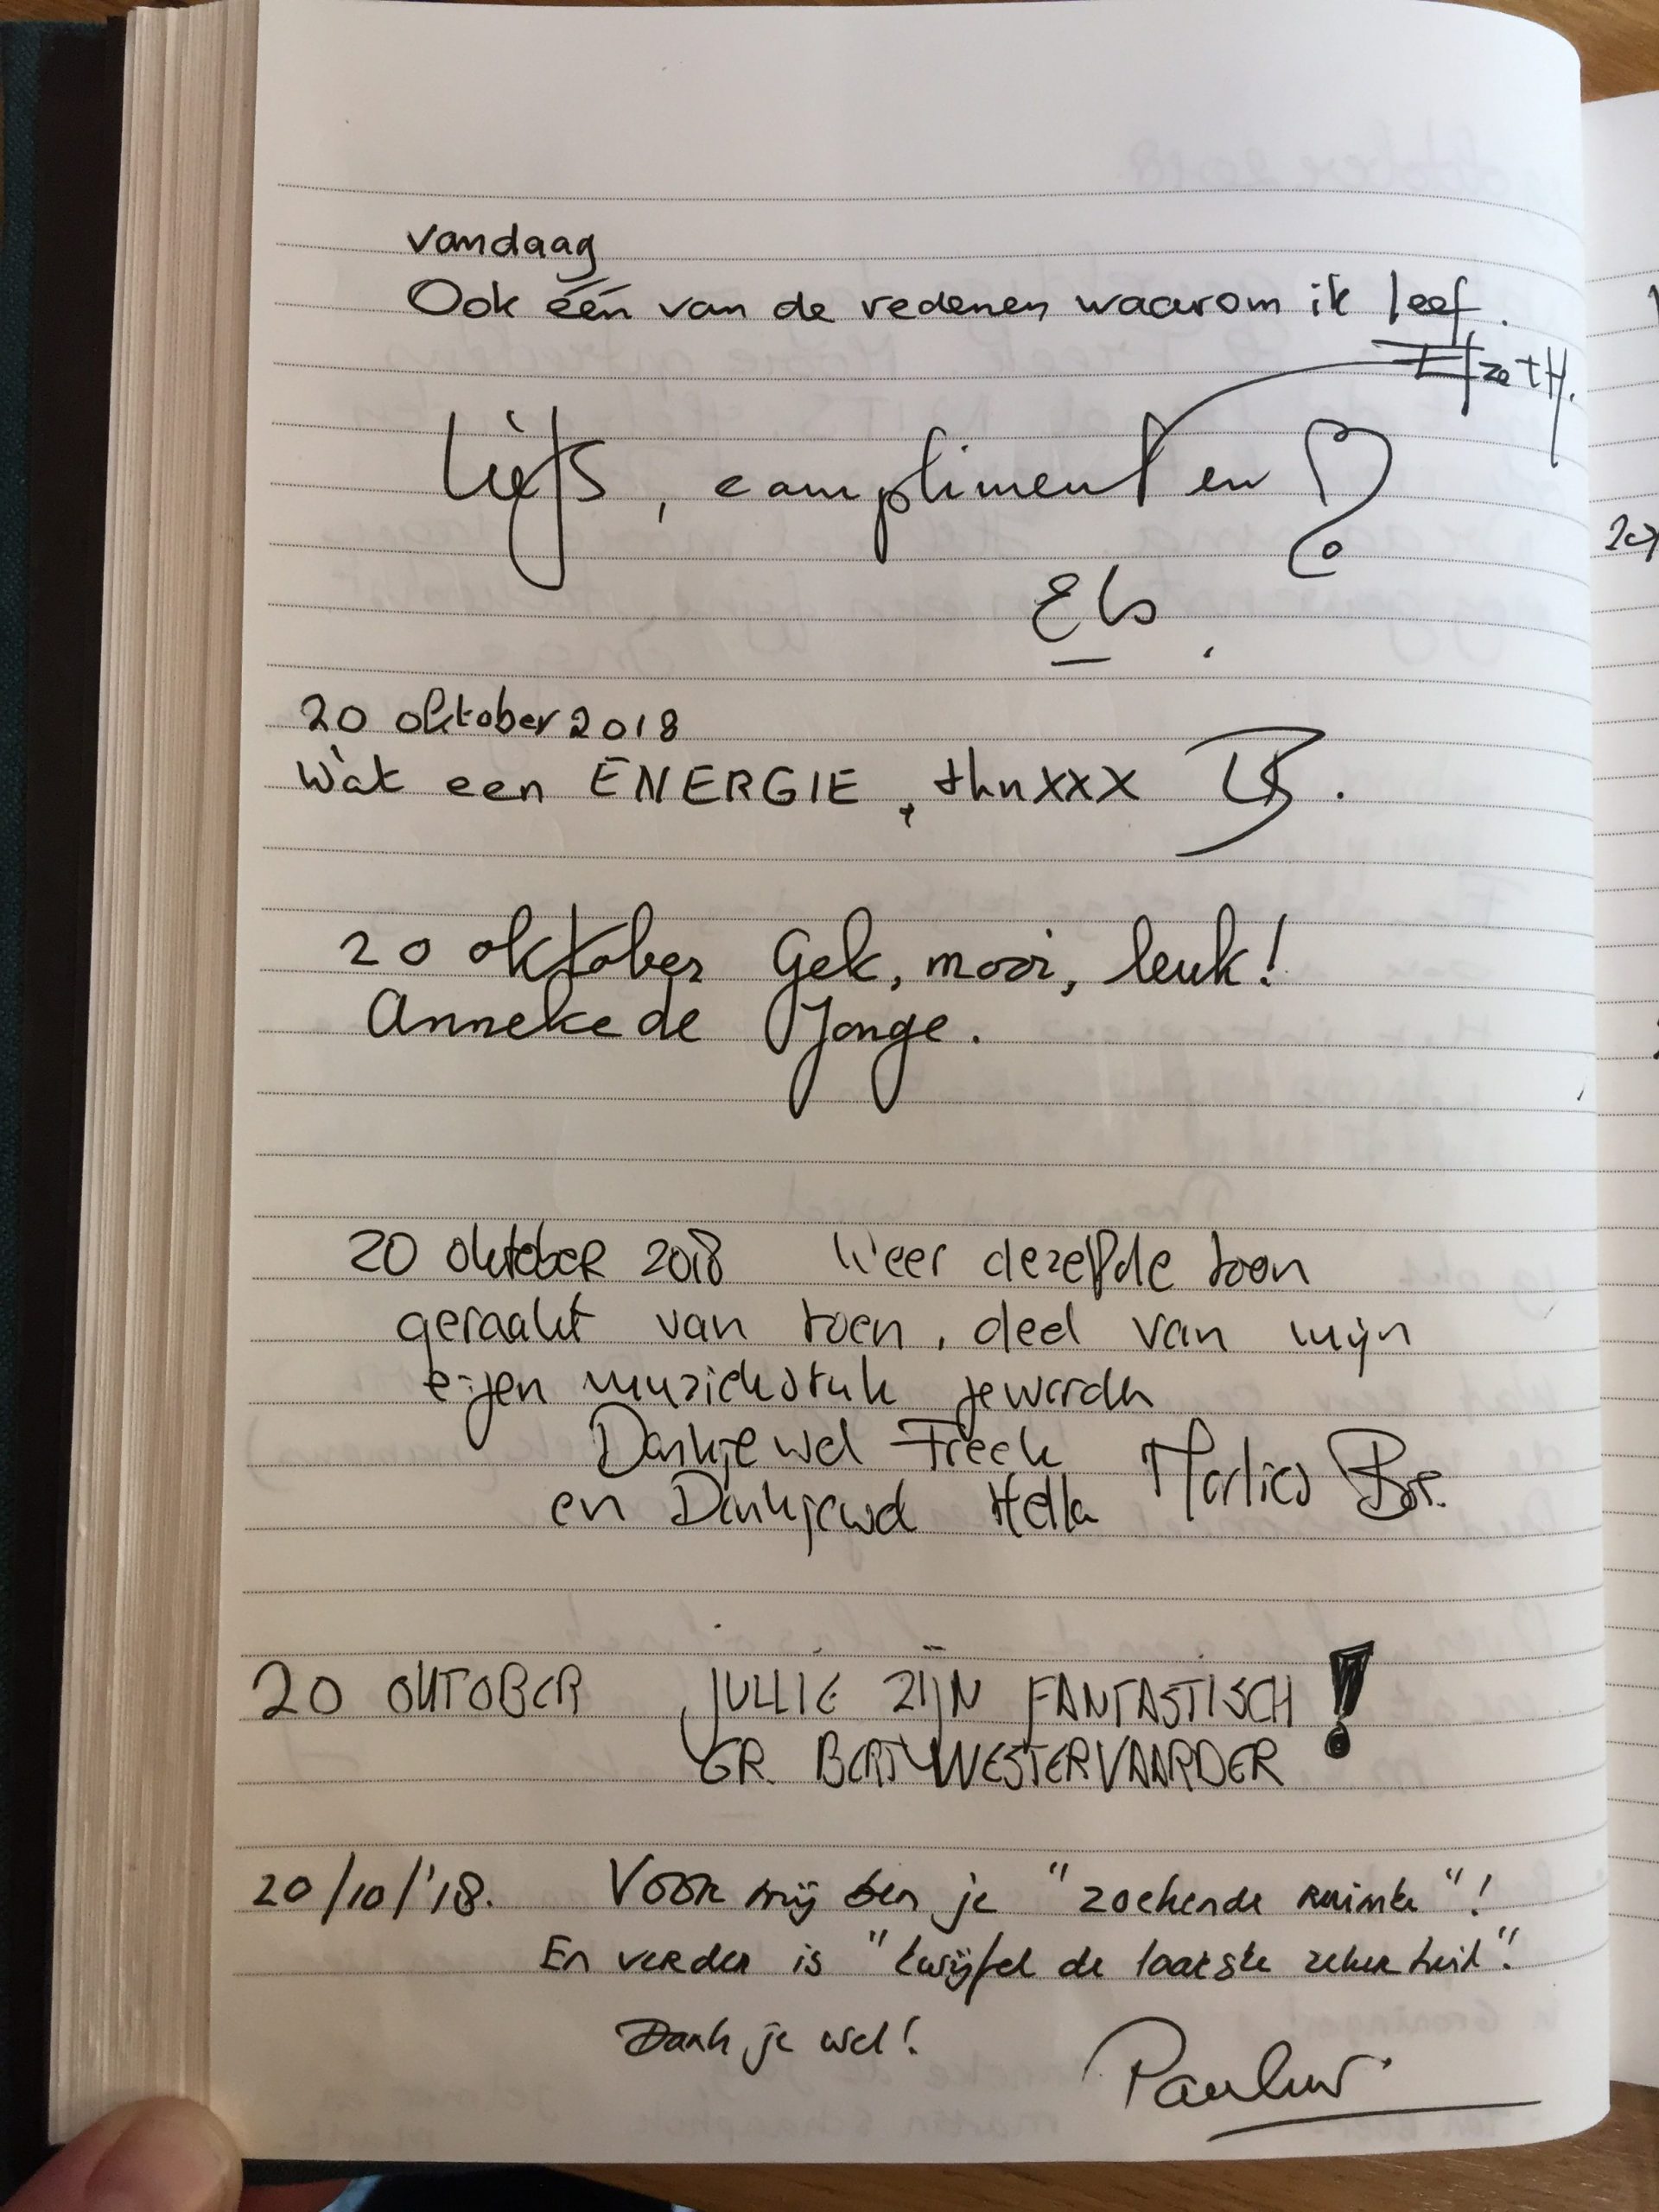 vandaag
Ook één van de redenen waarom ik leef.
liefs, compliment en
Els.
20 oktober 2018
Wat een ENERGIE, thnxxx
20 oktober Gek, mooi, leuk!
Anneke de Jonge.
20 oktober 2018 Weer dezelfde toon
geraakt van toen, deel van mijn
eigen muziekstuk geworden
Dankjewel Freek
en Dankjewel Hella Marlies Bos.
20 OKTOBER JULLIE ZIJN FANTASTISCH!
GR. BERT WESTERVAARDER
20/10/'18. Voor mij ben je "zoekende ruimte"!
En verder is "twijfel de laatste zekerheid".
Dank je wel!